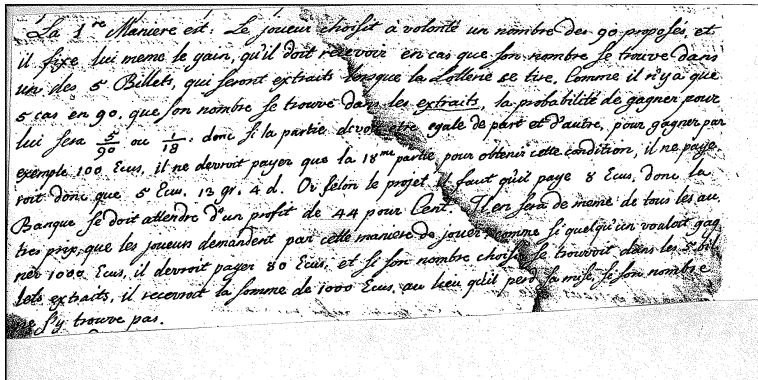 La 1re Maniere est: Le joueur choisit a volonté un nombre des 90 proposés, et
il fixe lui meme le gain, qu'il doit recevoir en cas que son nombre se trouve dans
un des 5 Billets, qui seront extraits lorsque la Lotterie se tire. Comme il n'y a que
5 cas en 90. que son nombre se trouve dans les extraits, la probabilité de gagner pour
lui sera 5/90 ou 1/18: donc si la partie devoit etre egale de part et d'autre, pour gagner par
exemple 100 Ecus, il ne devroit payer que la 18me partie pour obtenir cette condition, il ne paye
roit donc que 5 Ecu. 13 gr. 4 d. Or selon le projet il faut qu'il paye 8 Ecus, donc la
Banque se doit attendre d'un profit de 44 pour Cent. Il en sera de meme de tous les au
tres prix, que les joueurs demandent par cette maniere de jouer: comme si quelqu'un vouloit gag
ner 1000 Ecus, il devroit payer 80 Ecus, et si son nombre choisi se trouvoit dans les 5 bil
lets extraits, il recevroit la somme de 1000 Ecus, au lieu qu'il perd la mise si son nombre
ne s'y trouve pas.